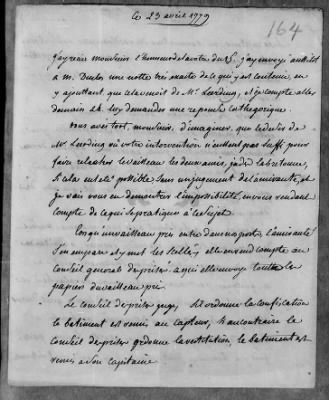 ce 23 avril 1779
164
J'ay recu monsieur l'honneur de la votre du 18. J'ay envoyé aussitôt
a m. une notte tres exacte de ce qui y est contenu, en
y ajoutant que cela venoit de Mr. et je compte aller
demain lui demander une reponse cathegorique.
vous avés tort, monsieur, d'imaginer que
Mr. ou votre intervention n'eussent pas suffi pour
faire relacher le vaisseau
cela eut été possible sans un jugement de l'amirauté, et
je vais vous en demontrer l'impossibilité en vous rendant
compte de ce qui se pratique a ce sujet
Lorsqu'un vaisseau pris entre dans nos ports, l'amirauté
s'en empare et y met les scellés, elle en rend compte au
Conseil general des prises a qui elle envoye toutes les
papiers du vaisseau pris
Le Conseil des prises juge, s'il ordonne la confiscation
le batiment est remis au capteur, si au contraire le
Conseil des prises ordonne la restitution, le batiment est
remis a son capitaine